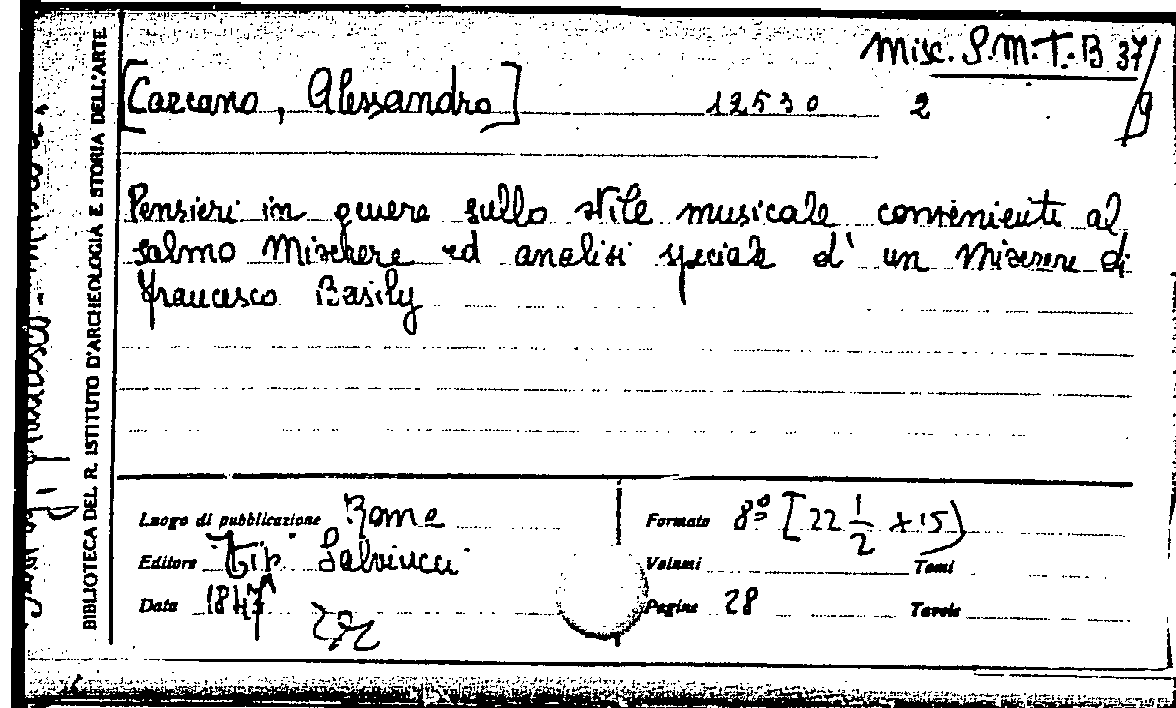 Misc. S.M.T. B 37/9
[Carcano, Alessandro] 12530 2
Pensieri in genere sullo stile musicale conveniente al
salmo Mischere ed analisi speciale d' un Miserere di
Francesco Basily
BIBLIOTECA DEL R. ISTITUTO D'ARCHEOLOGIA E STORIA DELL'ARTE
Luogo di pubblicazione Roma
Editore Tip. Salviucci
Data 1847
Formato 8º [22 1/2 x 15)
Volumi Tomi
Pagine 28 Tavole